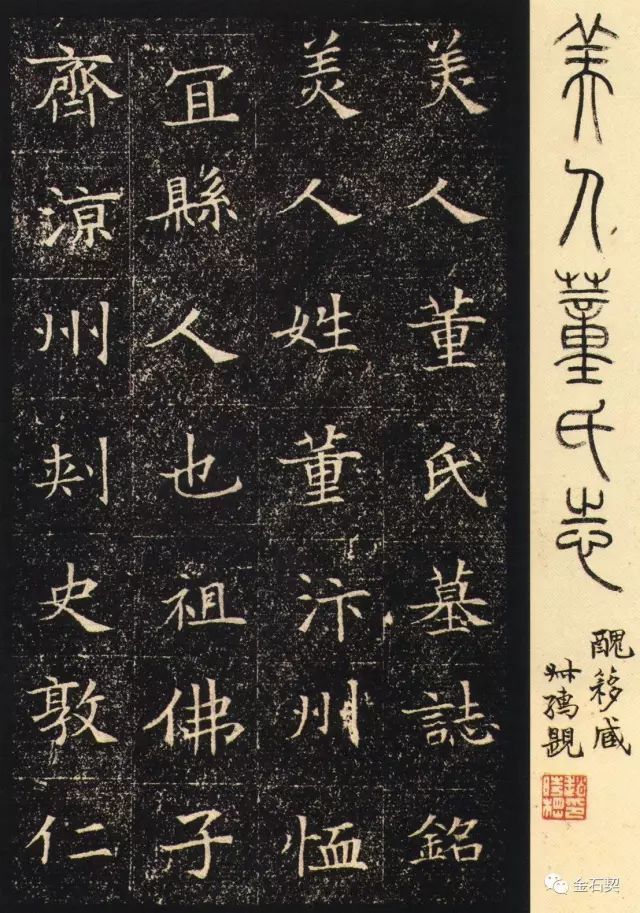 美人董氏志
醜簃藏
叔孺題
美人董氏墓誌銘
美人姓董汴州恤
冝縣人也祖佛子
齊涼州刾史敦仁
金石契